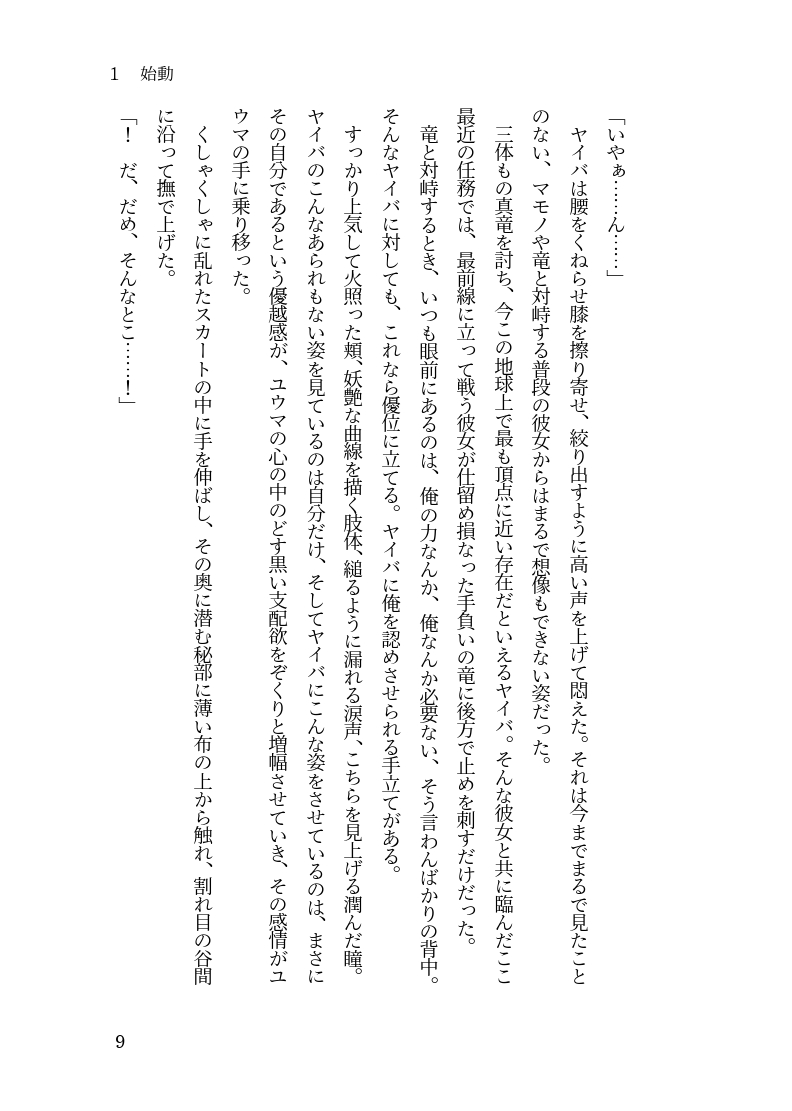 1　始動
「いやぁ……ん……」
　ヤイバは腰をくねらせ膝を擦り寄せ、絞り出すように高い声を上げて悶えた。それは今までまるで見たこと
のない、マモノや竜と対峙する普段の彼女からはまるで想像もできない姿だった。
　三体もの真竜を討ち、今この地球上で最も頂点に近い存在だといえるヤイバ。そんな彼女と共に臨んだここ
最近の任務では、最前線に立って戦う彼女が仕留め損なった手負いの竜に後方で止めを刺すだけだった。
　竜と対峙するとき、いつも眼前にあるのは、俺の力なんか、俺なんか必要ない、そう言わんばかりの背中。
そんなヤイバに対しても、これなら優位に立てる。ヤイバに俺を認めさせられる手立てがある。
　すっかり上気して火照った頬、妖艶な曲線を描く肢体、縋るように漏れる涙声、こちらを見上げる潤んだ瞳。
ヤイバのこんなあられもない姿を見ているのは自分だけ、そしてヤイバにこんな姿をさせているのは、まさに
その自分であるという優越感が、ユウマの心の中のどす黒い支配欲をぞくりと増幅させていき、その感情がユ
ウマの手に乗り移った。
　くしゃくしゃに乱れたスカートの中に手を伸ばし、その奥に潜む秘部に薄い布の上から触れ、割れ目の谷間
に沿って撫で上げた。
「！　だ、だめ、そんなとこ……！」
9